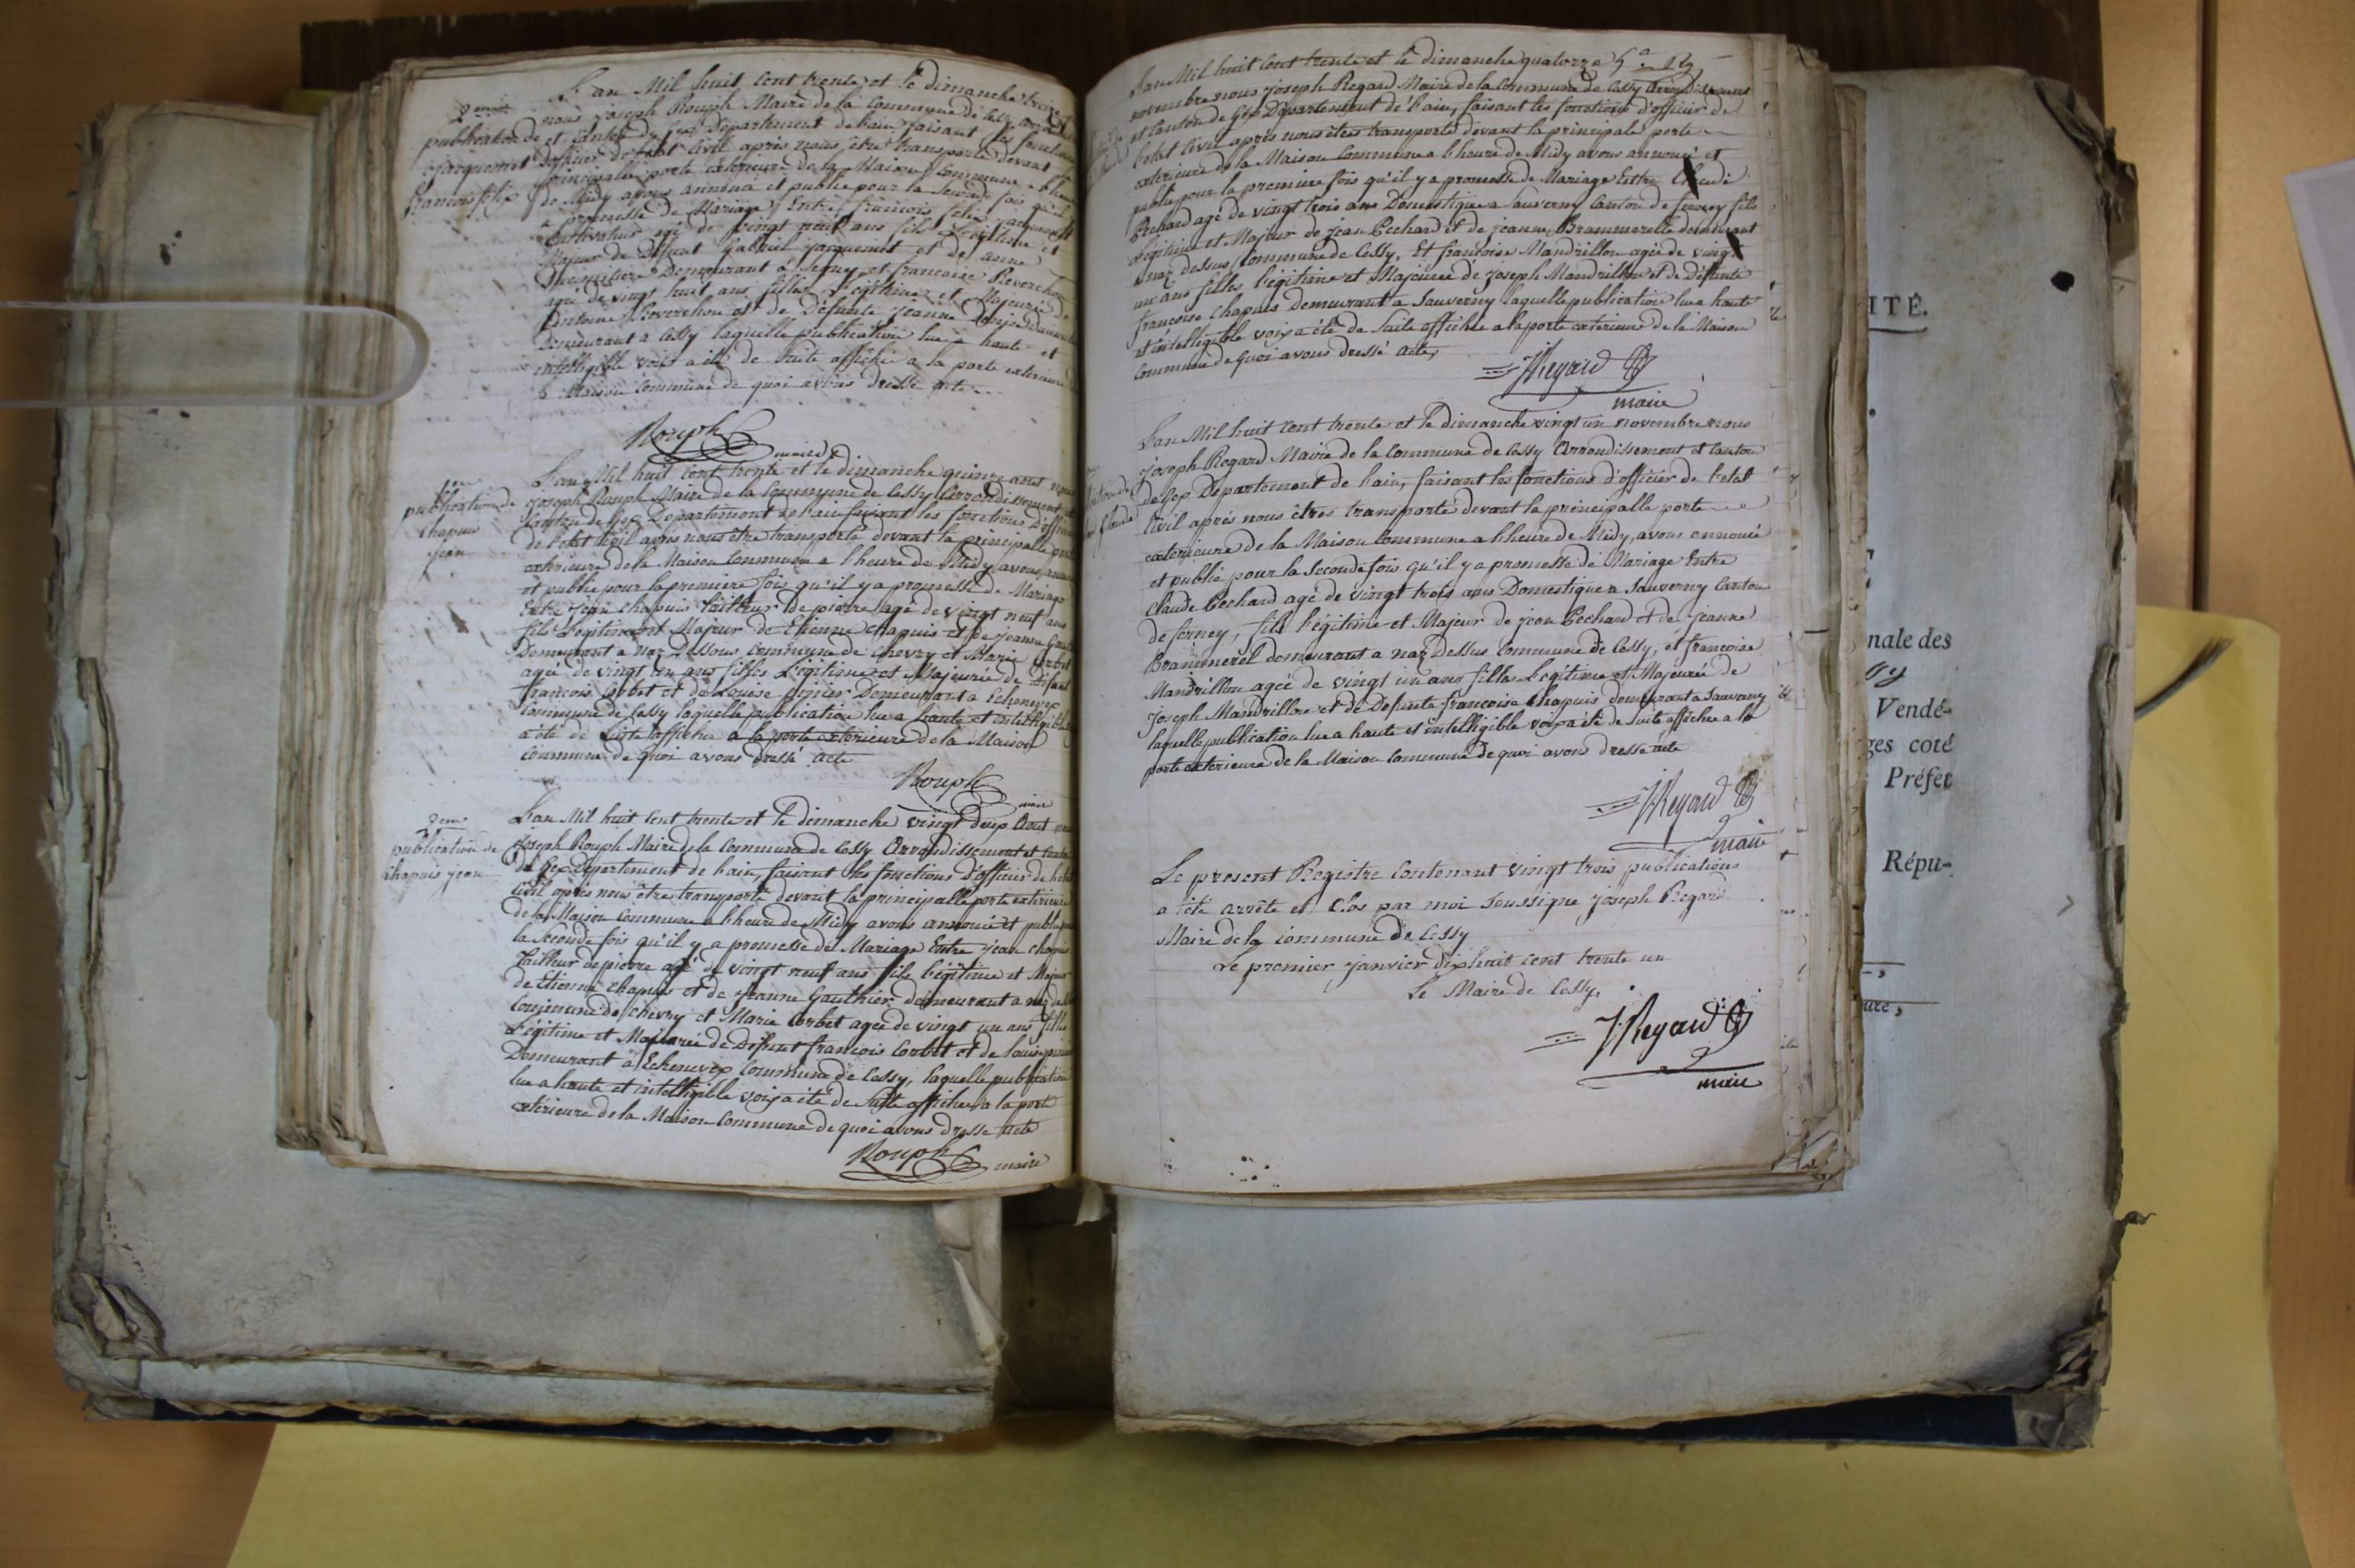 2eme
publication de
jacquemet
francois felix
L'an Mil huit Cent trente et le dimanche
nous joseph Rouph Maire de la Commune de Cessy
et Canton de Gex Departement de l'ain, faisant les fonctions
d'officier de l'etat Civil après nous être transporté devant la
principalle porte exterieure de la Maison Commune a l'heure
de Midy avons annoncé et publié pour la Seconde fois qu'il y
a promesse de Mariage Entre francois felix jacquemet
Cultivateur agé de vingt neuf ans fils Légitime et
Majeur de Defunt Gabriel jacquemet et de anne
Demeurant à Segny, et francoise Reverchon
agée de vingt huit ans filles Légitime et Majeure de
Antoine Reverchon et de Défunte jeanne
Demeurant a Cessy laquelle publication lue a haute et
intelligible voix a été de Suite affiché a la porte exterieure de
la Maison Commune de quoi avons dressé acte
Rouph
maire
1ere
publication de
Chapuis
jean
L'an Mil huit Cent trente et le dimanche quinze aout nous
joseph Rouph Maire de la Commune de Cessy Arrondissement et
Canton de Gex Departement de l'ain faisant les fonctions d'officier
de l'etat Civil après nous être transporté devant la principalle porte
exterieure de la Maison Commune a l'heure de Midy avons annoncé
et publié pour la premiere fois qu'il y a promesse de Mariage
Entre jean Chapuis tailleur de pierre agé de vingt neuf ans
fils Légitime et Majeur de Etienne Chapuis et de jeanne Gauthier
Demeurant a naz Dessous Commune de Chevry et Marie Corbet
agée de vingt un ans filles Légitime et Majeure de Défunt
francois Corbet et de Louise Demeurant a Echenevex
Commune de Cessy laquelle publication lue a haute et intelligible
a été de Suite affiché a la porte exterieure de la Maison
Commune de quoi avons dressé acte
Rouph
maire
2eme
publication de
Chapuis jean
L'an Mil huit Cent trente et le dimanche vingt deux Aout nous
joseph Rouph Maire de la Commune de Cessy Arrondissement et Canton
de Gex Departement de l'ain, faisant les fonctions d'officier de l'etat
Civil après nous être transporté devant la principalle porte exterieure
de la Maison Commune a l'heure de Midy avons annoncé et publié pour
la Seconde fois qu'il y a promesse de Mariage Entre jean Chapuis
tailleur de pierre agé de vingt neuf ans fils Légitime et Majeur
de Etienne Chapuis et de jeanne Gauthier demeurant a naz dessous
Commune de Chevry et Marie Corbet agée de vingt un ans filles
Légitime et Majeure de Defunt francois Corbet et de Louise
Demeurant a Echenevex Commune de Cessy, laquelle publication
lue a haute et intelligible voix a été de Suite affiché a la porte
exterieure de la Maison Commune de quoi avons dressé acte
Rouph
maire
L'an Mil huit Cent trente et le dimanche quatorze
novembre nous joseph Regard Maire de la Commune de Cessy Arrondissement
et Canton de Gex Departement de l'ain, faisant les fonctions d'officier de
l'etat Civil après nous êtres transporté devant la principale porte
exterieure de la Maison Commune a l'heure de Midy avons annoncé et
publié pour la premiere fois qu'il y a promesse de Mariage Entre Claude
Pechard agé de vingt trois ans Domestique a Sauverny Canton de ferney fils
Légitime et Majeur de jean Pechard et de jeanne Brammerelle demeurant
a naz dessus Commune de Cessy, Et francoise Mandrillon agée de vingt
un ans filles Légitime et Majeure de joseph Mandrillon et de Défunte
francoise Chapuis Demeurant a Sauverny laquelle publication lue a haute
et intelligible voix a été de Suite affichée a la porte exterieure de la Maison
Commune de quoi avons dressé acte,
J Regard
maire
Claude
L'an Mil huit Cent trente et le dimanche vingt un novembre nous
joseph Regard Maire de la Commune de Cessy Arrondissement et Canton
de Gex Departement de l'ain, faisant les fonctions d'officier de l'etat
Civil aprés nous êtres transporté devant la principalle porte
exterieure de la Maison Commune a l'heure de Midy, avons annoncé
et publié pour la Seconde fois qu'il y a promesse de Mariage Entre
Claude Pechard agé de vingt trois ans Domestique a Sauverny Canton
de ferney, fils Légitime et Majeur de jean Pechard et de jeanne
Brammerel demeurant a naz dessus Commune de Cessy, et francoise
Mandrillon agée de vingt un ans filles Légitime et Majeure de
joseph Mandrillon et de Defunte francoise Chapuis demeurant a Sauverny
laquelle publication lue a haute et intelligible voix a été de Suite affichée a la
porte exterieure de la Maison Commune de quoi avons dressé acte
J Regard
maire
Le present Registre Contenant vingt trois publications
a été arrêté et Clos par moi Soussigné joseph Regard
Maire de la Commune de Cessy
Le premier janvier dixhuit Cent trente un
Le Maire de Cessy,
J Regard
maire
ITÉ.
nale des
Vendé-
ges coté
Préfet
Répu-